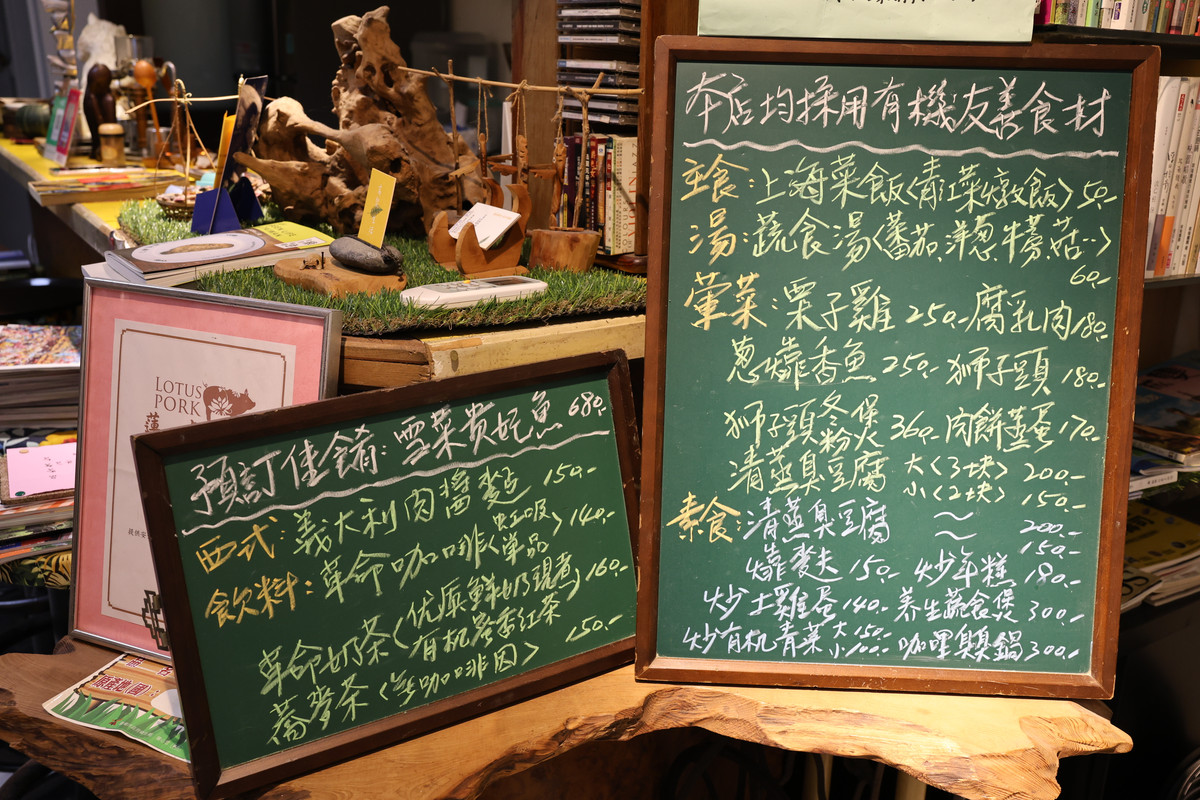 本店均採用有機友善食材
主食:上海菜飯(青江菜燉飯) 50.-
湯:蔬食湯(蕃茄.洋蔥.牛蒡.菇…)
60.-
葷菜:栗子雞 250.- 腐乳肉 180.-
蔥㸆香魚 250.- 獅子頭 180.-
獅子頭冬粉煲 360.- 肉餅蒸蛋 170.-
清蒸臭豆腐 大(3塊) 200.-
小(2塊) 150.-
素食:清蒸臭豆腐 ~ 200.-
~ 150.-
㸆麥夫 150.- 炒年糕 180.-
炒土雞蛋 140.- 养生蔬食煲 300.-
炒有机青菜 大150.- 小100.- 咖哩臭臭鍋 300.-
預訂佳餚:雪菜貴妃魚 680.-
西式:義大利肉醬麵 150.-
飲料:革命咖啡(單品 虹吸) 140.-
革命奶茶(优质鮮奶現煮 160.-
有机冬季紅茶)
蕎麥茶(無咖啡因) 150.-
LOTUS
PORK
蓮